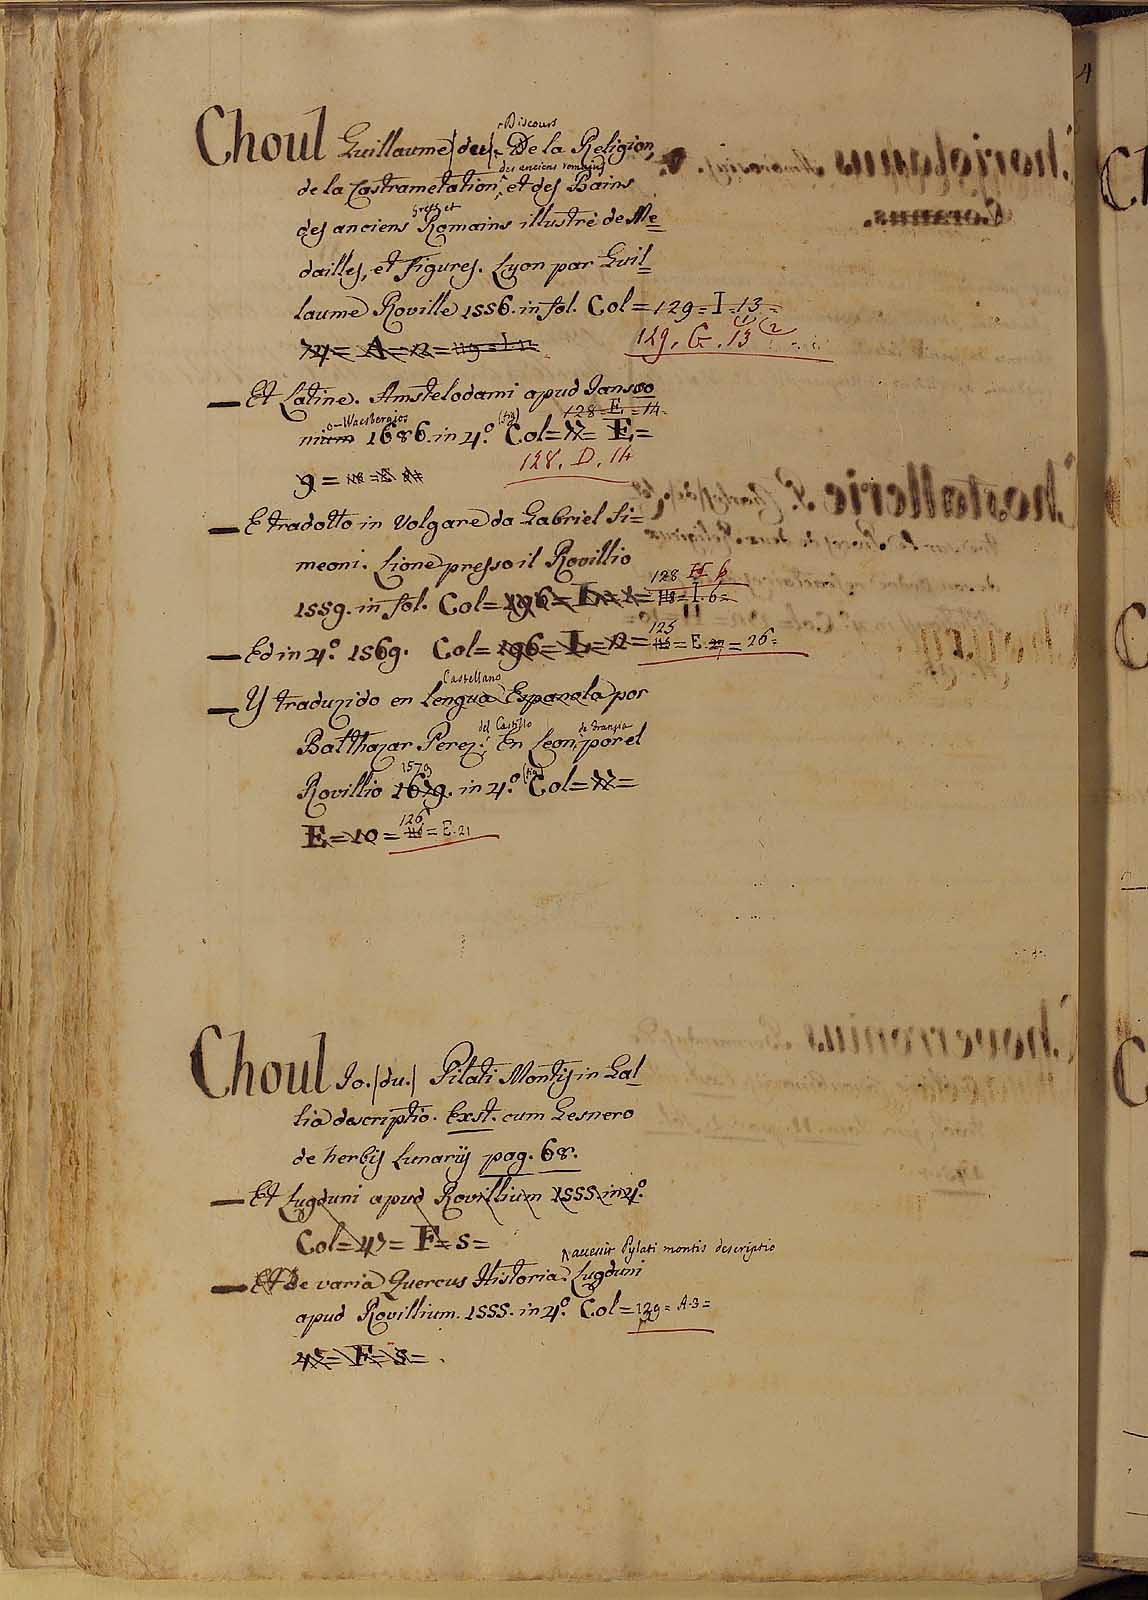 Choul Guillaume (du). Discours De la Religion,
de la Castrametation, des anciens romains et des Bains
des anciens Grecs et Romains illustré de Me=
dailles, et Figures. Lyon par Guil=
laume Roville 1556. in fol. Col= 129= I=13=
129. G. 13
— Et Latine. Amstelodami apud Jansso
nium o-Waesbergios 1686. in 4.º (fig) Col= E= 128=E=14.
128. D. 14
9=
— E tradotto in Volgare da Gabriel Si=
meoni. Lione presso il Rovillio
1559. in fol. Col= 196= L= 1= 118= I. 6=
128 H 6
— Ed in 4.º 1569. Col= 196= L= 12= 125 = E. 27= 26=
— Y traduzido en lengua Castellano Espanola por
Balthazar Perez del Castillo En Leon de Francia por el
Rovillio 1679. 1579 in 4.º (fig) Col=
E= 10= 126 = E. 21
Choul Jo. (du.) Pilati Montis in Gal=
lia descriptio. Exst. cum Gesnero
de herbis Lunariis pag. 68.
— Et Lugduni apud Rovillium 1555. in 4º.
Col= 47= F= 5=
— Et De varia Quercus Historia. accessit Pylati montis descriptio Lugduni
apud Rovillium. 1555. in 4º. Col= 129= A.3=
F= 5=
4